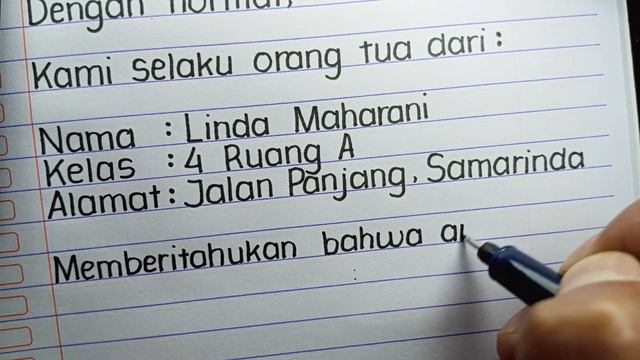 Dengan hormat,
Kami selaku orang tua dari :
Nama : Linda Maharani
Kelas : 4 Ruang A
Alamat : Jalan Panjang, Samarinda
Memberitahukan bahwa